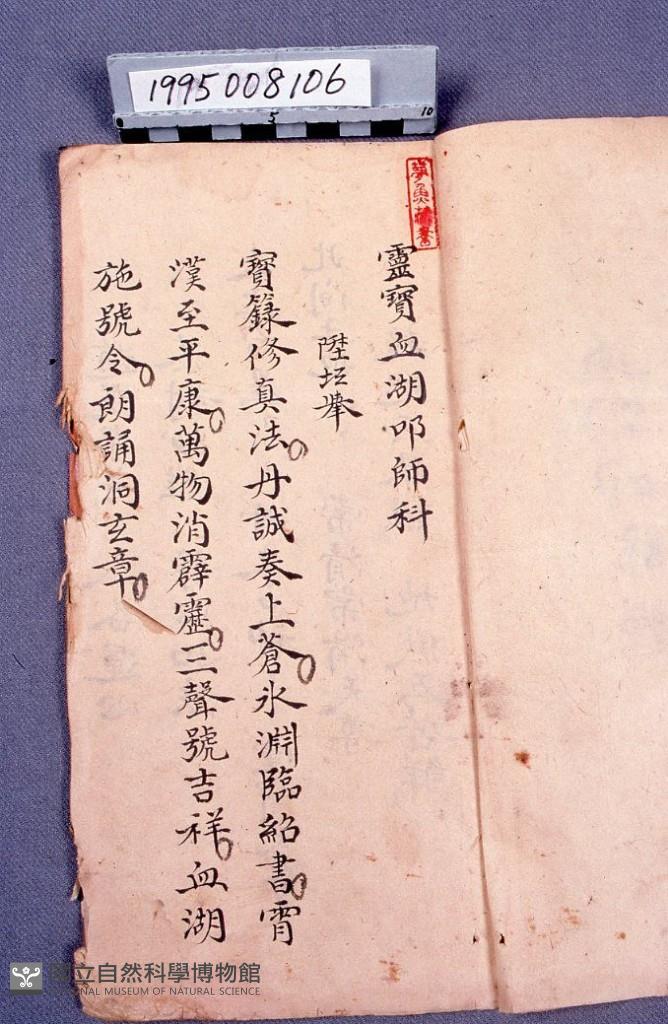 1995008106
5
10
靈寶血湖叩師科
陞坛舉
寶籙修真法丹誠奏上蒼氷淵臨紹書霄
漢至平康萬物消霹靂三聲號吉祥血湖
施號令朗誦洞玄章
立自然科學博物館
NAL MUSEUM OF NATURAL SCIENCE